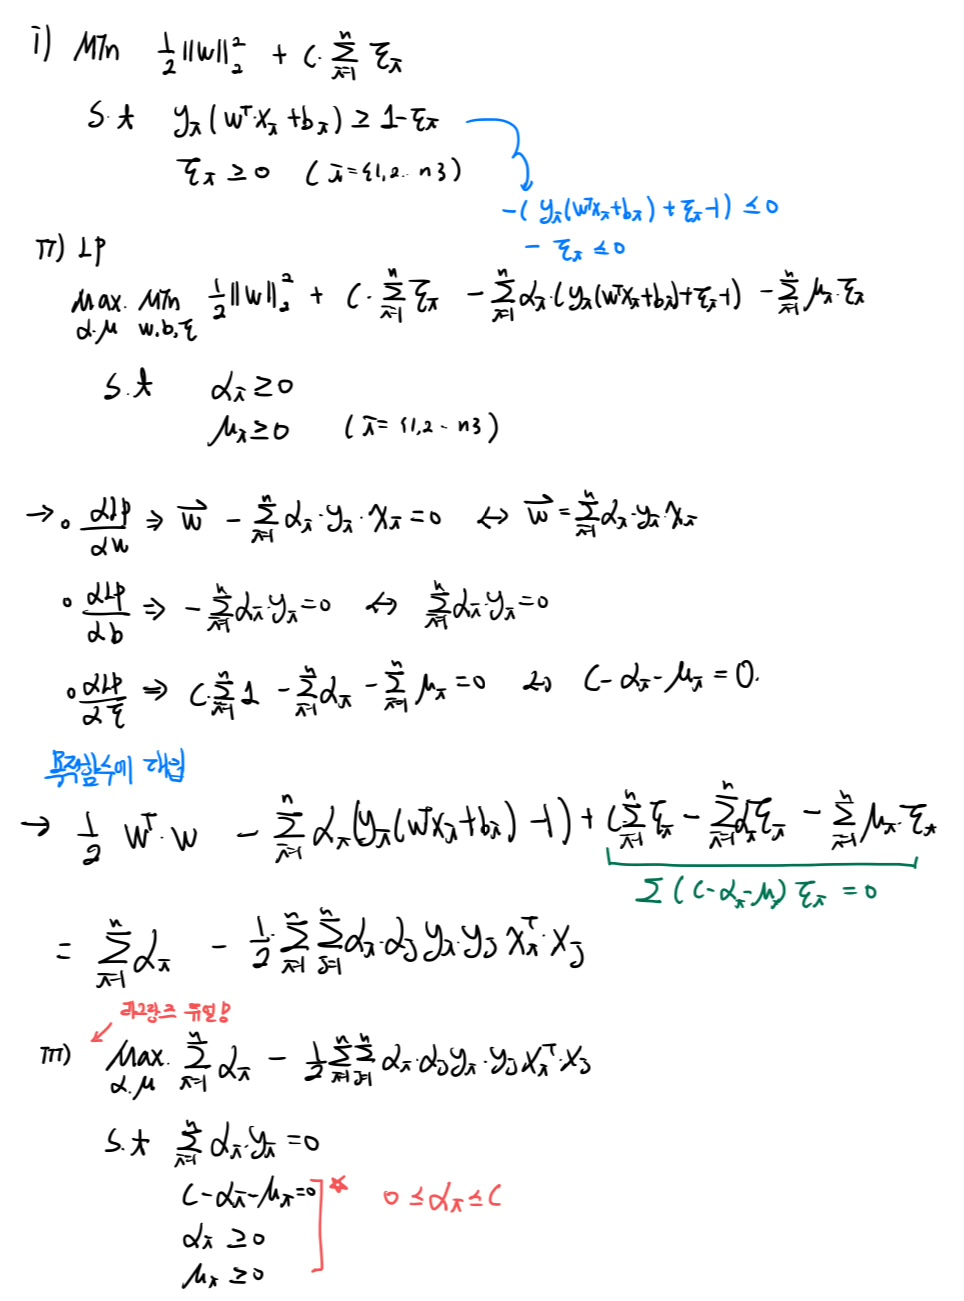 i) Min 1/2 ||w||₂² + C·∑ᵢ₌₁ⁿ ξᵢ
s.t yᵢ(wᵀ·xᵢ + bᵢ) ≥ 1-ξᵢ
ξᵢ ≥ 0 (i={1,2.. n})
-(yᵢ(wᵀxᵢ+bᵢ) + ξᵢ-1) ≤ 0
- ξᵢ ≤ 0
ii) LP
Max. Min 1/2 ||w||₂² + C·∑ᵢ₌₁ⁿ ξᵢ - ∑ᵢ₌₁ⁿ αᵢ·(yᵢ(wᵀxᵢ+bᵢ)+ξᵢ-1) - ∑ᵢ₌₁ⁿ μᵢ·ξᵢ
α.μ w.b.ξ
s.t αᵢ ≥ 0
μᵢ ≥ 0 (i= {1,2.. n})
→ ∘ αLP/αw ⇒ w⃗ - ∑ᵢ₌₁ⁿ αᵢ·yᵢ·xᵢ = 0 ↔ w⃗ = ∑ᵢ₌₁ⁿ αᵢ·yᵢ·xᵢ
∘ αLP/αb ⇒ -∑ᵢ₌₁ⁿ αᵢ·yᵢ = 0 ⇔ ∑ᵢ₌₁ⁿ αᵢ·yᵢ = 0
∘ αLP/αξ ⇒ C·∑ᵢ₌₁ⁿ 1 - ∑ᵢ₌₁ⁿ αᵢ - ∑ᵢ₌₁ⁿ μᵢ = 0 ⇔ C - αᵢ - μᵢ = 0.
목적함수에 대입
→ 1/2 wᵀ·w - ∑ᵢ₌₁ⁿ αᵢ(yᵢ(wᵀxᵢ+bᵢ) -1) + C∑ᵢ₌₁ⁿ ξᵢ - ∑ᵢ₌₁ⁿ αᵢξᵢ - ∑ᵢ₌₁ⁿ μᵢ·ξᵢ
∑ (C-αᵢ-μᵢ) ξᵢ = 0
= ∑ᵢ₌₁ⁿ αᵢ - 1/2·∑ᵢ₌₁ⁿ ∑ⱼ₌₁ⁿ αᵢ·αⱼ yᵢ·yⱼ xᵢᵀ·xⱼ
라그랑즈 듀얼
iii) Max. ∑ᵢ₌₁ⁿ αᵢ - 1/2 ∑ᵢ₌₁ⁿ ∑ⱼ₌₁ⁿ αᵢ·αⱼ yᵢ·yⱼ xᵢᵀ·xⱼ
α.μ
s.t ∑ᵢ₌₁ⁿ αᵢ·yᵢ = 0
C-αᵢ-μᵢ=0 ☆ 0 ≤ αᵢ ≤ C
αᵢ ≥ 0
μᵢ ≥ 0